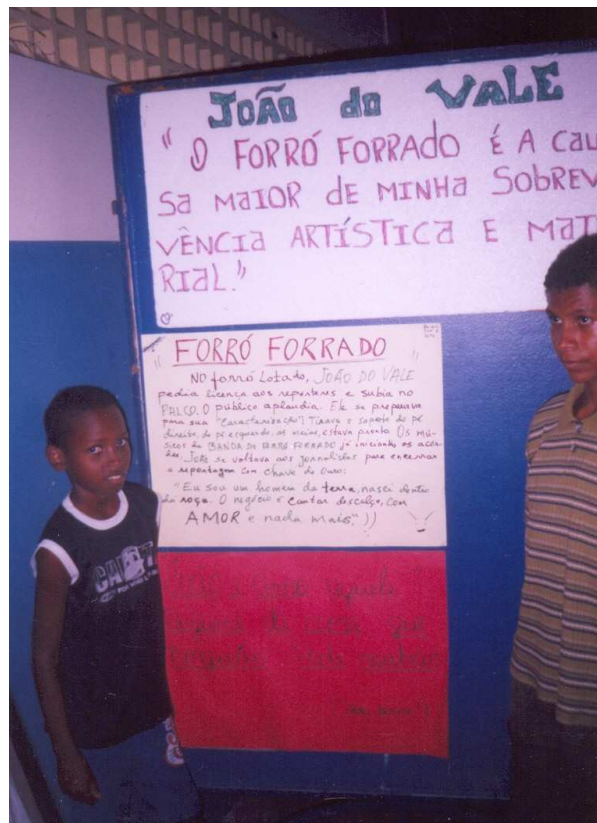 JOÃO do VALE
" O FORRÓ FORRADO É A CAU
SA MAIOR DE MINHA SOBREV
VÊNCIA ARTÍSTICA E MAT
RIAL."
" FORRÓ FORRADO "
NO forró Lotado, JOÃO DO VALE
pedia licença aos reporteres e subia no
PALCO. O público aplaudia. Ele se preparava
para sua "Caracterização": Tirava o sapato do pé
direito, do pé esquerdo, as meias, estava pronto. Os MÚ-
sicos da BANDA DO FORRÓ FORRADO já iniciando os acor
des, João se voltava aos jornalistas para encerrar
a reportagem com chave de Ouro:
"Eu sou um homem da terra, nasci dentro
da roça. O negócio é cantar descalço, com
AMOR e nada mais."